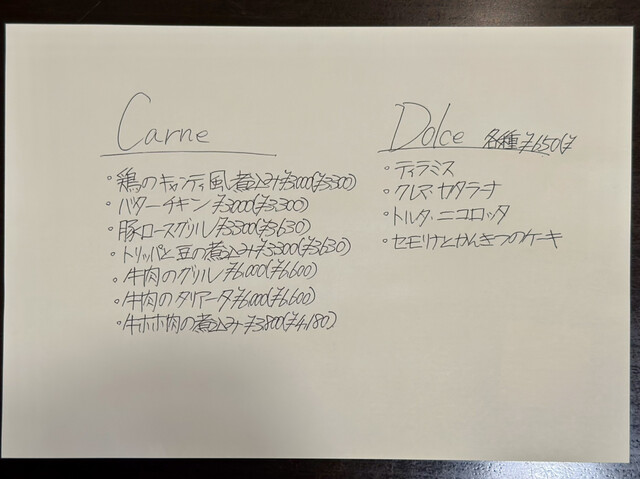 Carne
・鶏のキャンティ風煮込み ¥3000(¥3300)
・バターチキン ¥3000(¥3,300)
・豚ロースグリル ¥3300(¥3630)
・トリッパと豆の煮込み ¥3300(¥3630)
・牛肉のグリル ¥6,000(¥6600)
・牛肉のタリアータ ¥6,000(¥6,600)
・牛ホホ肉の煮込み ¥3800(¥4,180)
Dolce 各種 ¥650(¥
・ティラミス
・クレマ・カタラーナ
・トルタ・ニコロッタ
・セモリナとかんきつのケーキ